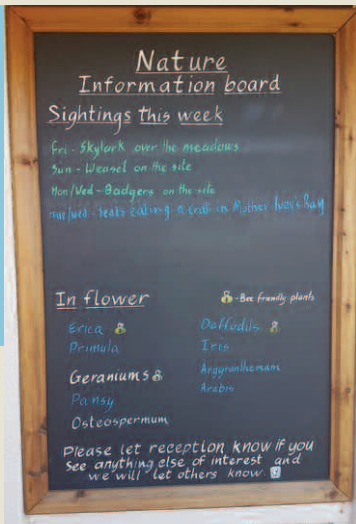 Nature
Information board
Sightings this week
Fri - Skylark over the meadows
Sun - Weasel on the site
Mon/Wed - Badgers on the site
Tue/Wed - Seals eating a crab in Mother Iveys Bay
In flower
- Bee friendly plants
Erica
Daffodils
Primula
Iris
Geraniums
Argyranthemam
Pansy
Arabis
Osteospermum
Please let reception know if you
see anything else of interest and
we will let others know.